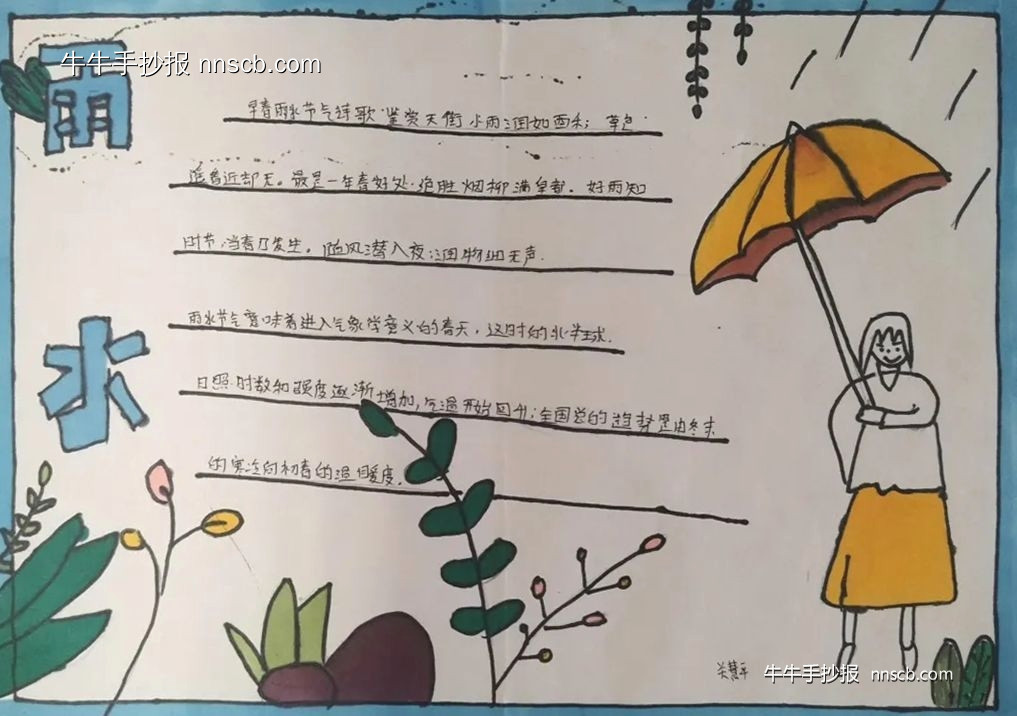 牛牛手抄报 nnscb.com
雨
水
早春雨水节气诗歌·鉴赏天街小雨润如酥; 草色
遥看近却无。最是一年春好处·绝胜烟柳满皇都. 好雨知
时节,当春乃发生。随风潜入夜;润物细无声.
雨水节气意味着进入气象学意义的春天, 这时的北半球.
日照·时数和强度逐渐增加,气温开始回升;全国总的趋势是由冬末
的寒冷向初春的温暖度.
牛牛手抄报 nnscb.com